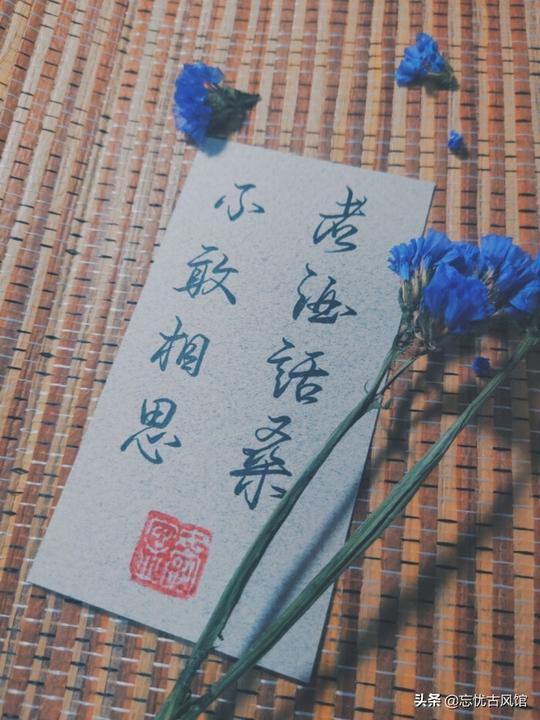 煮酒话桑
不敢相思
头条 @忘忧古风馆